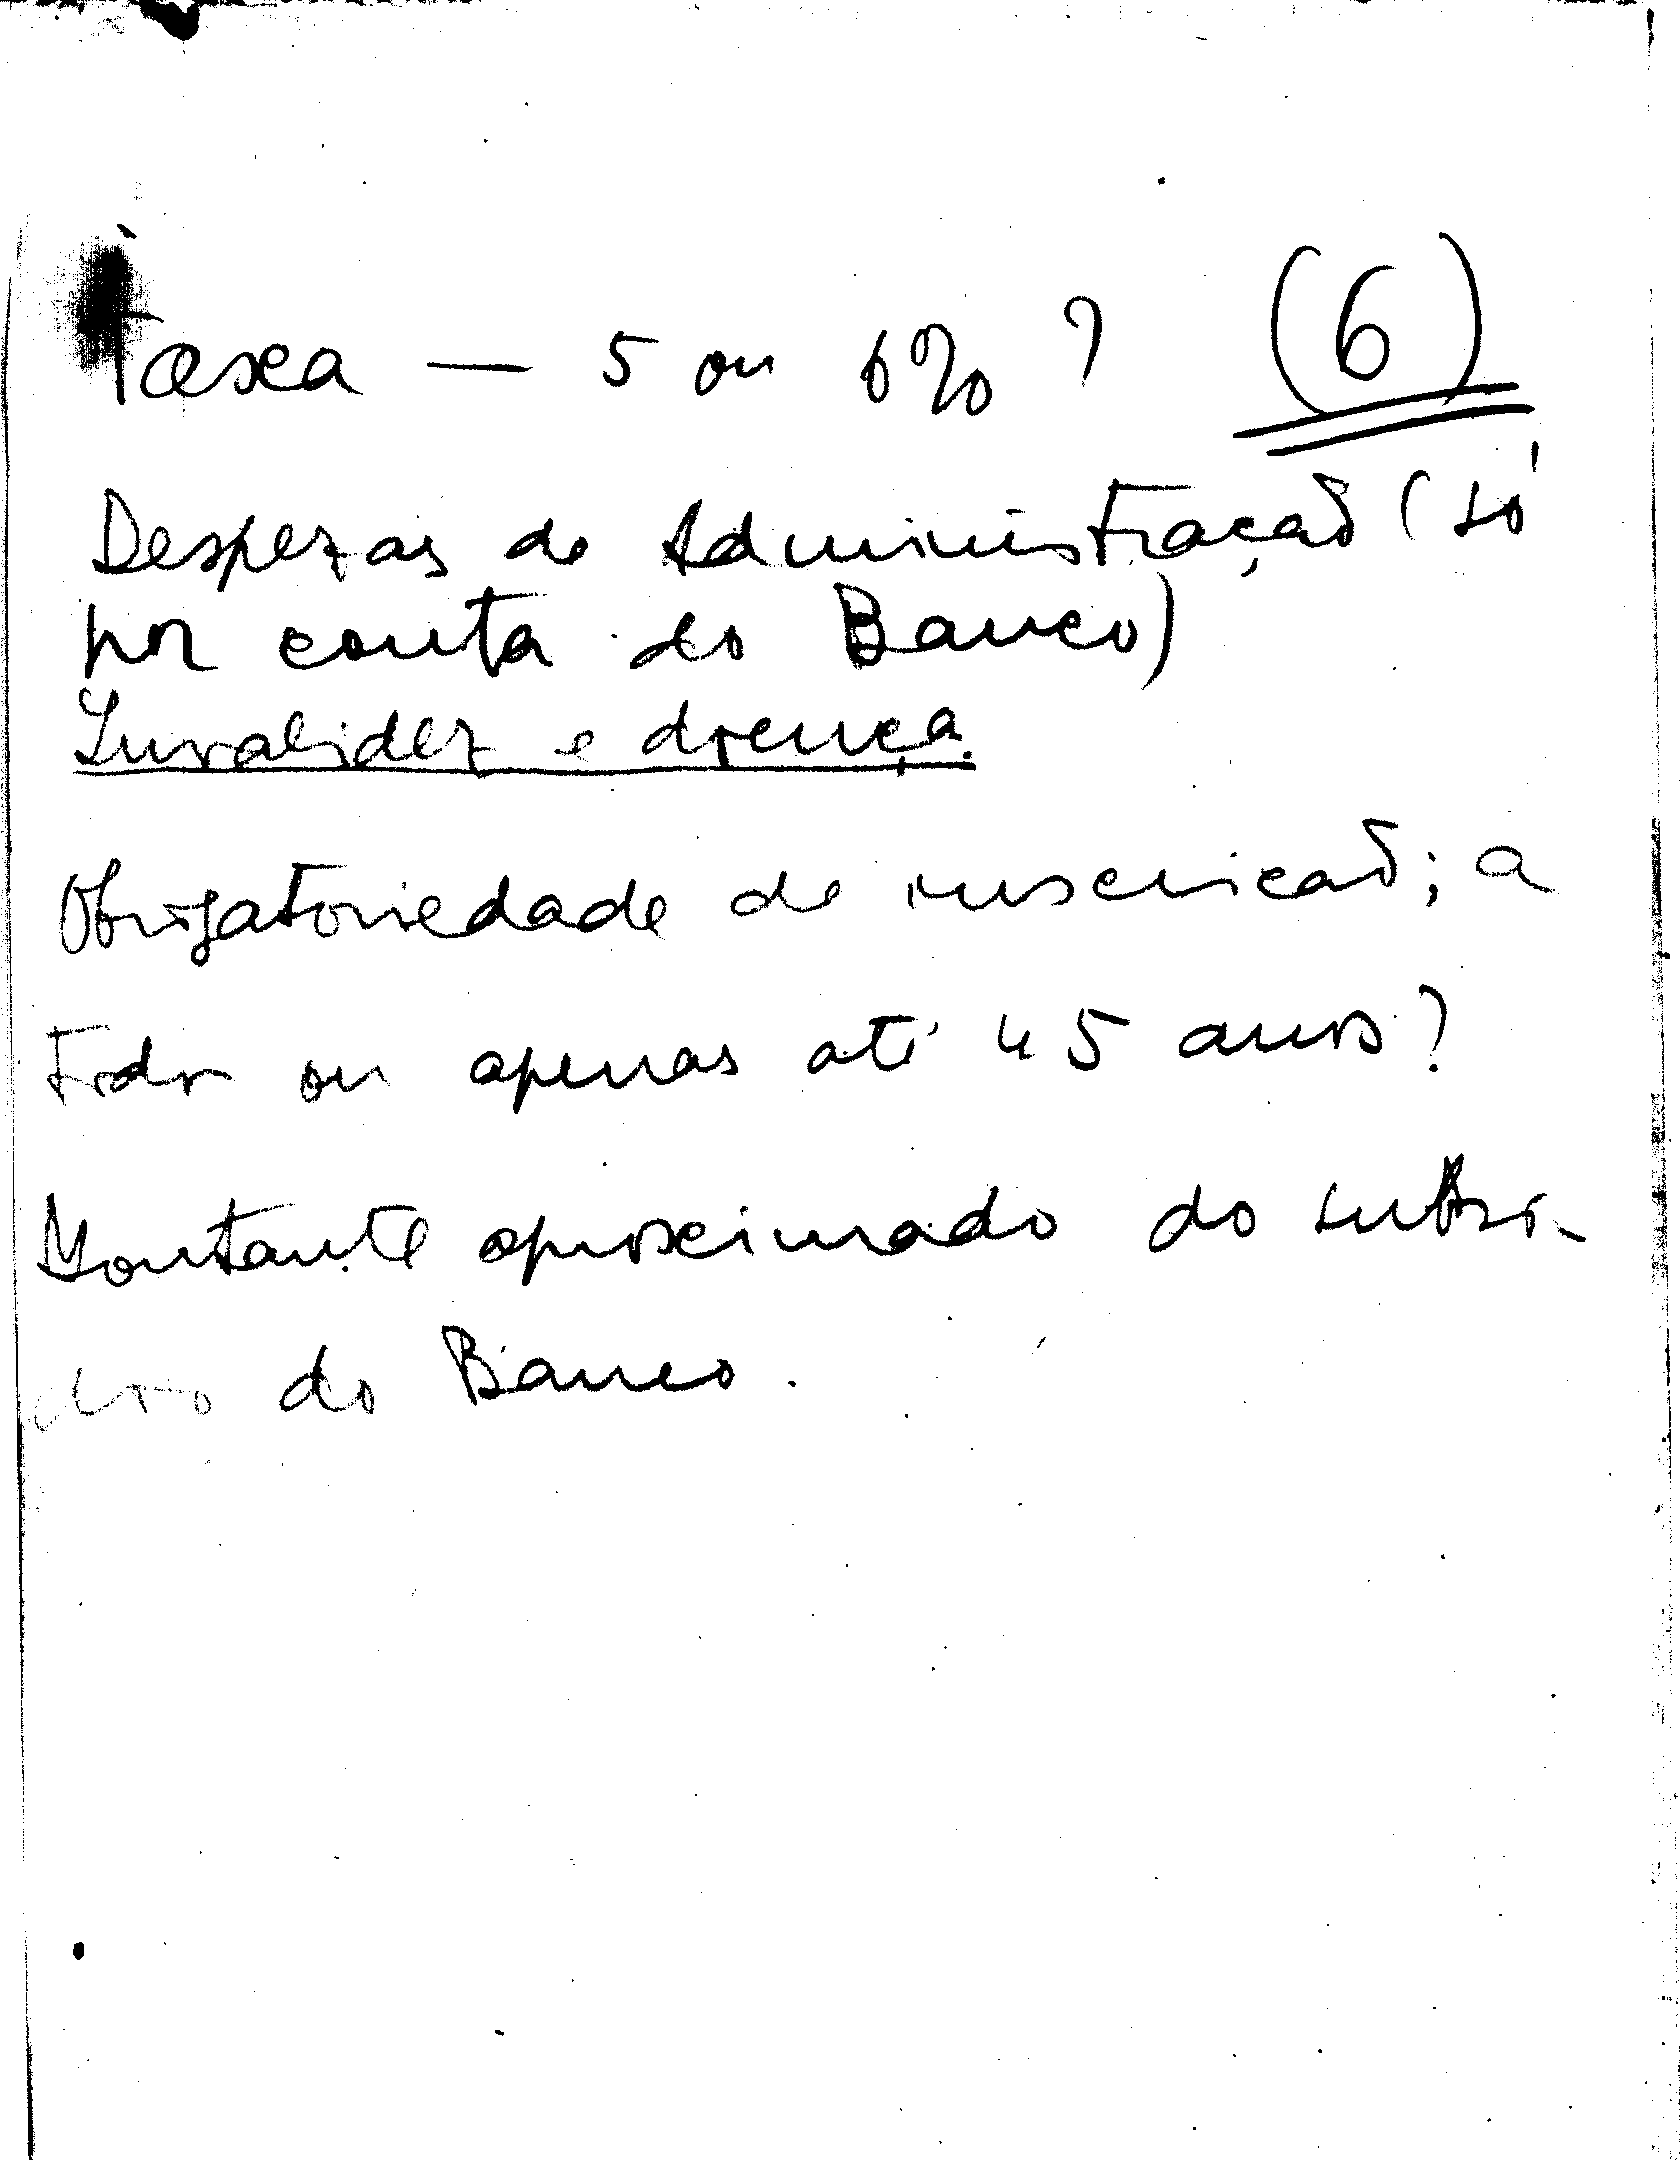 Taxa — 5 ou 6% ? (6)
Despezas de Administração (só
por conta do Banco)
Invalidez e doença.
Obrigatoriedade de inscricaõ; a
todos ou apenas até 45 anos?
Montante aproximado do subsi-
dio do Banco.